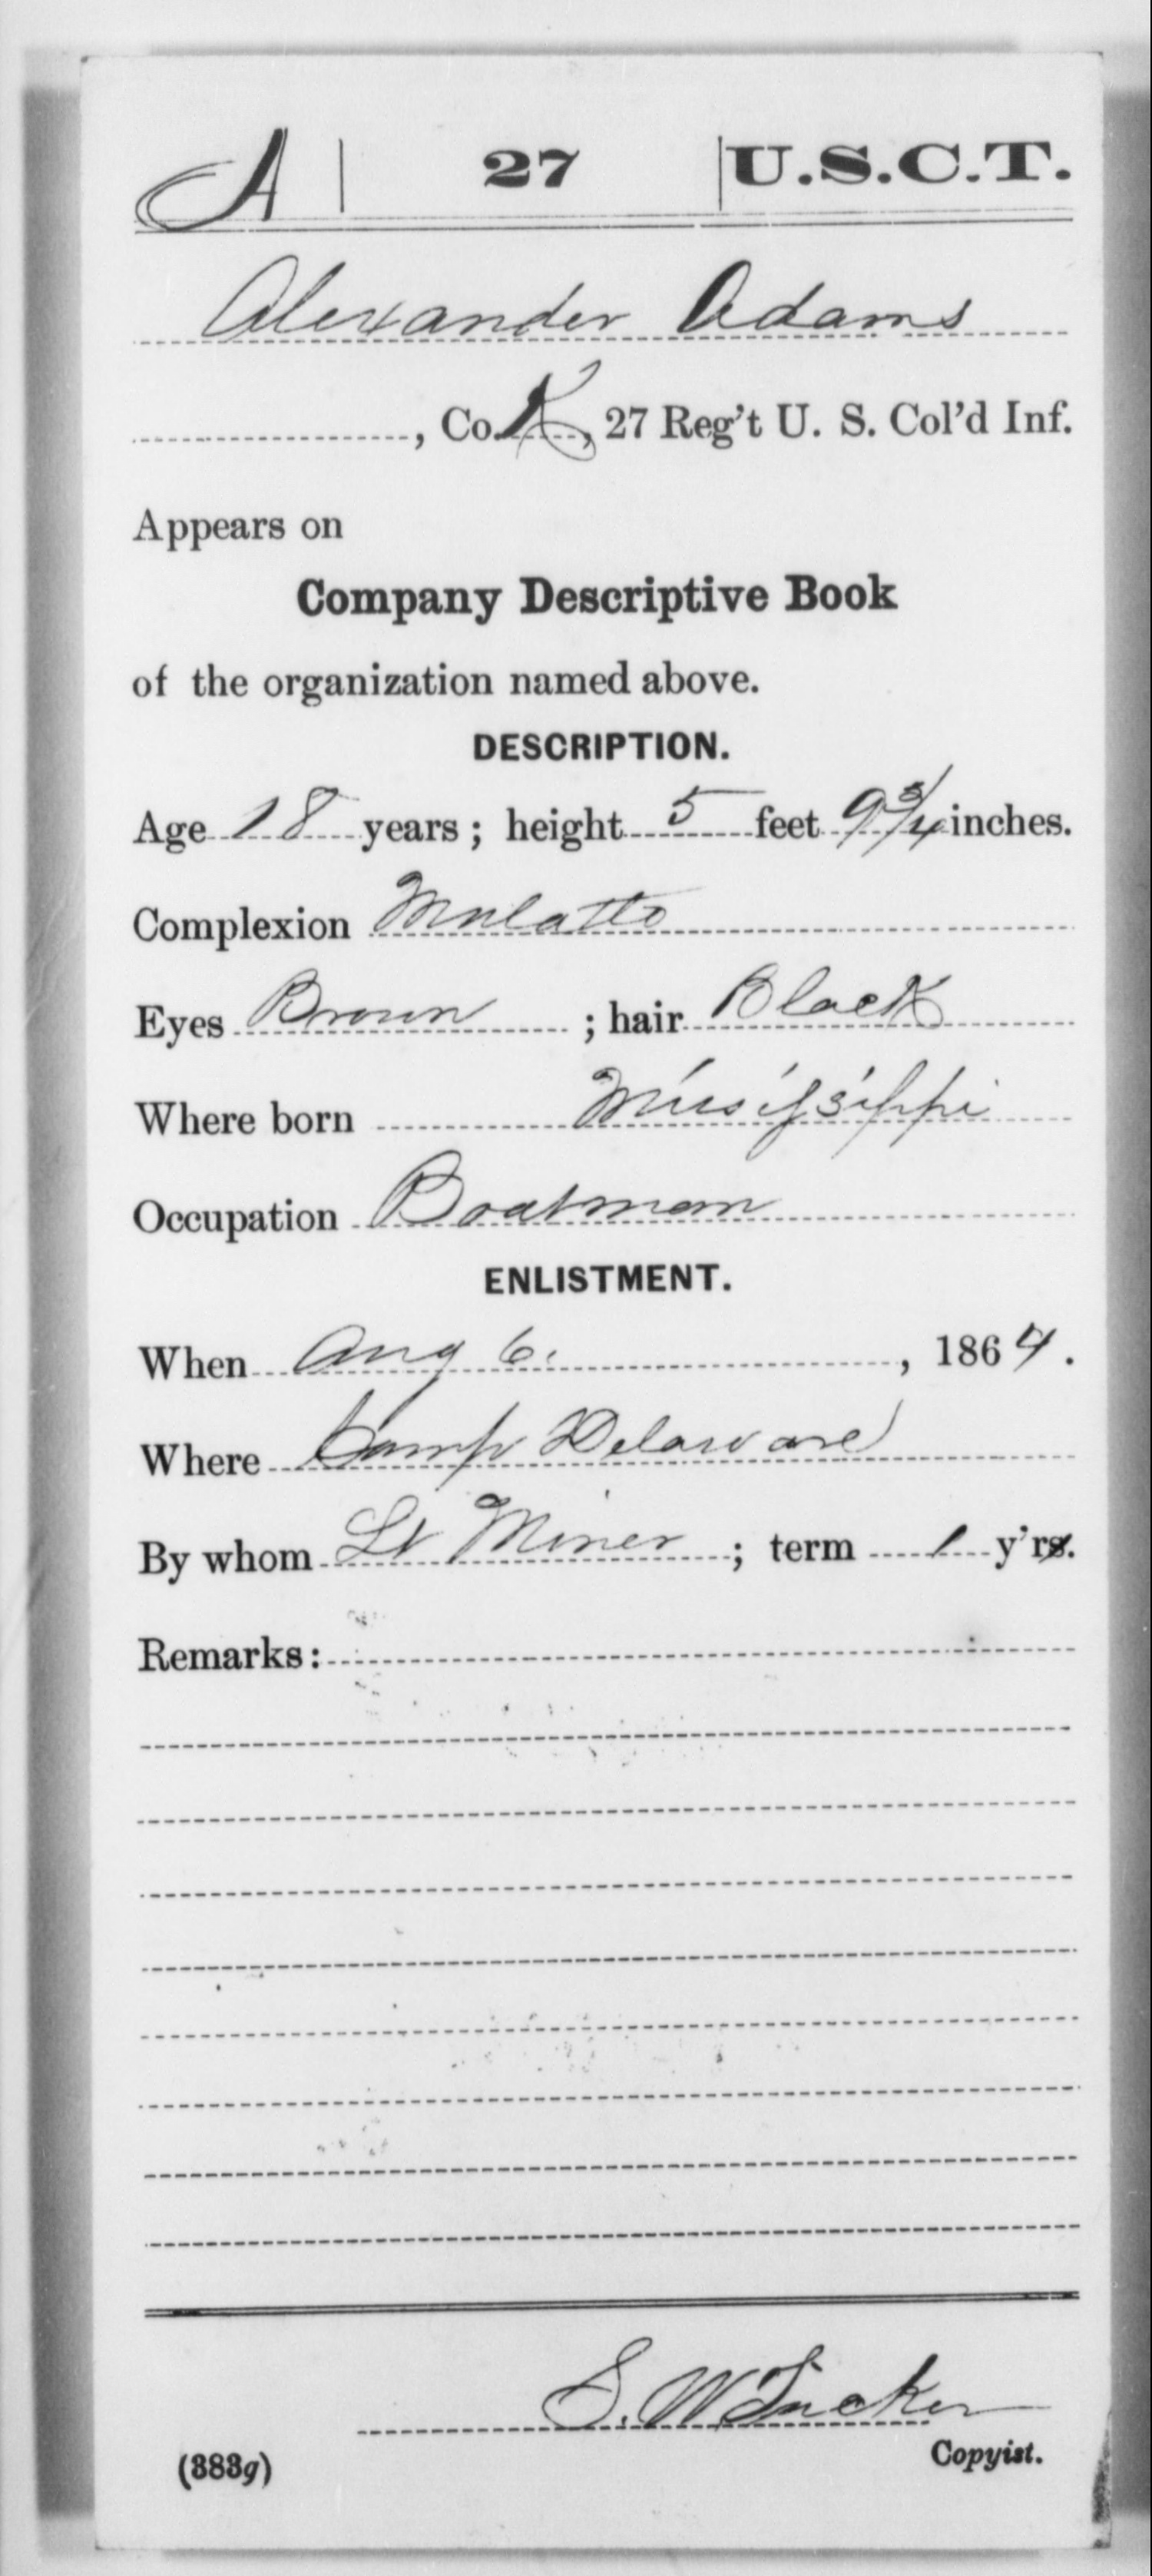 A | 27 | U.S.C.T.
Alexander Adams
, Co. K, 27 Reg't U. S. Col'd Inf.
Appears on
Company Descriptive Book
of the organization named above.
DESCRIPTION.
Age 18 years; height 5 feet 9 3/4 inches.
Complexion Mulatto
Eyes Brown ; hair Black
Where born Mississippi
Occupation Boatman
ENLISTMENT.
When Aug 6. , 1864.
Where Camp Delaware
By whom Lt Miner ; term 1 y'rs.
Remarks:
S. W. Tucker
Copyist.
(383g)